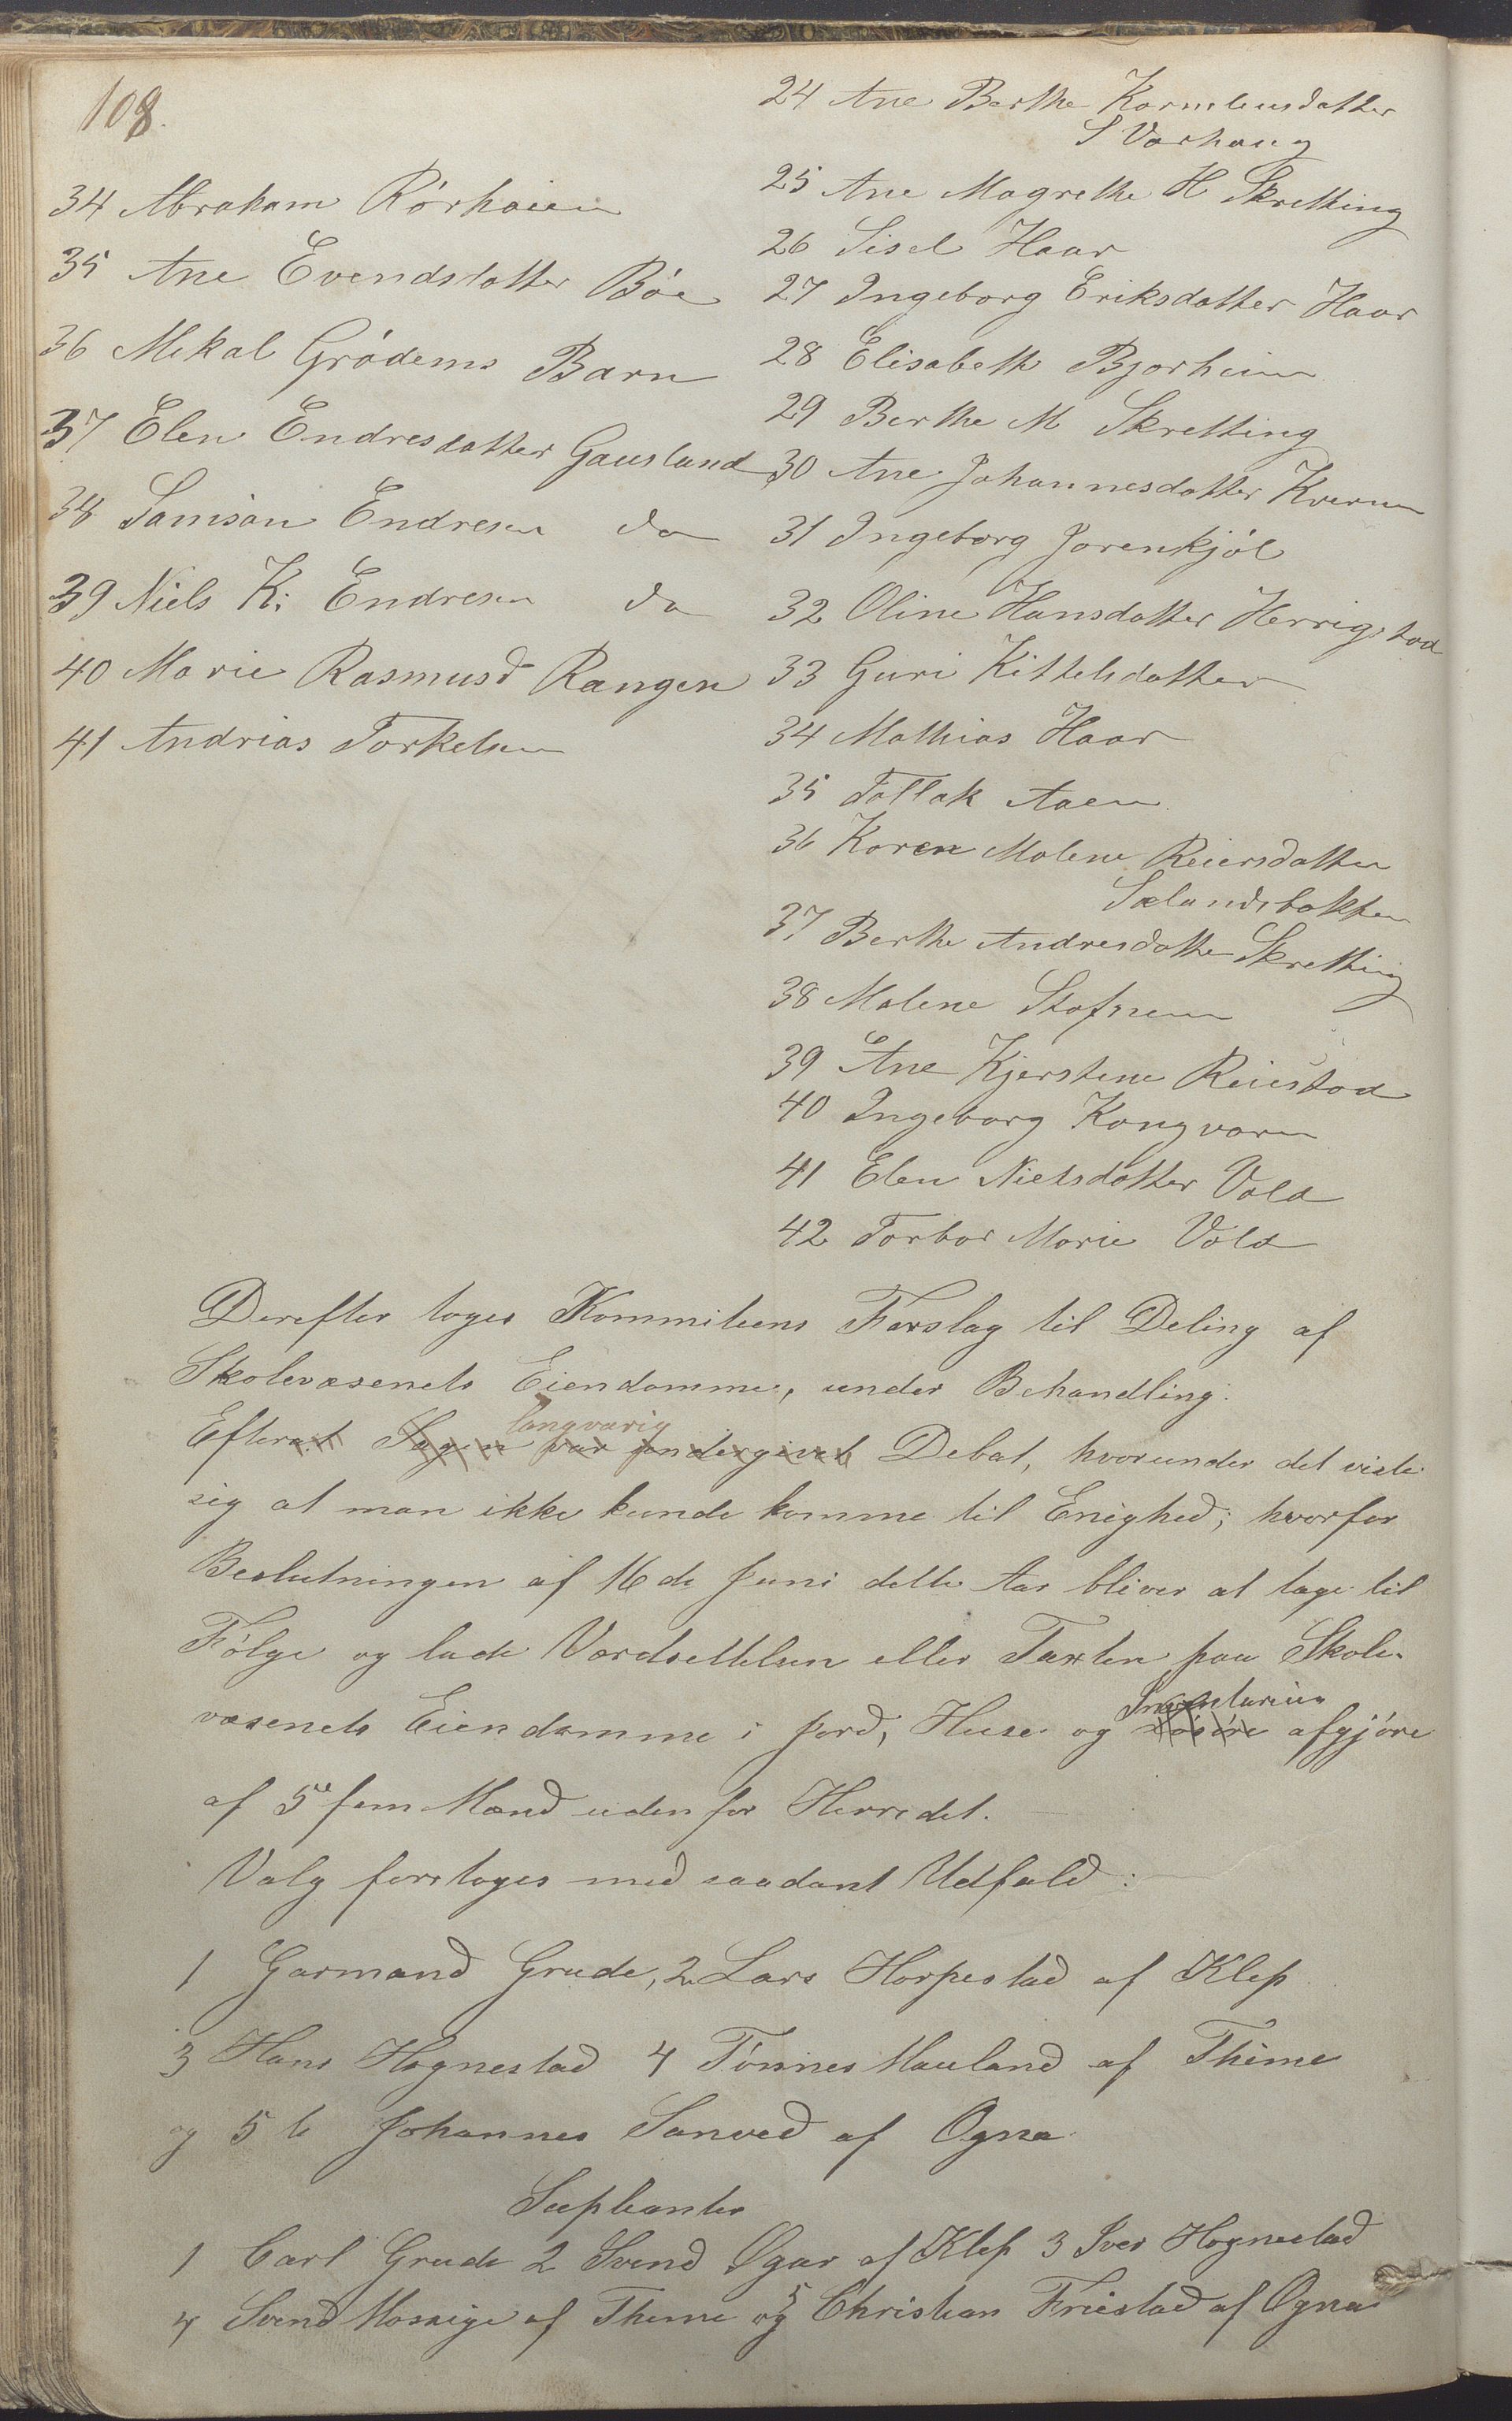 108.
34 Abraham Rørhaien
35 Ane Evendsdatter Bøe
36 Mikal Grødems Barn
37 Elen Endresdatter Gausland
38 Samson Endresen do
39 Niels K. Endresen do
40 Marie Rasmusd Rangen
41 Andrias Torkelsen
24 Ane Berthe Korneliusdatter
S Varhaug
25 Ane Magrethe H Skretting
26 Sisel Haar
27 Ingeborg Eriksdatter Haar
28 Elisabeth Bjorheim
29 Berthe M Skretting
30 Ane Johannesdatter Kverm
31 Ingeborg Jorenkjøl
32 Oline Hansdatter Herrigstad
33 Guri Kittelsdatter
34 Mathias Haar
35 Tollak Aaen
36 Karen Malene Reiersdatter
Sælandsbakken
37 Berthe Andresdatter Skretting
38 Malene Stofnem
39 Ane Kjerstine Reiestad
40 Ingeborg Kongvarn
41 Elen Nielsdatter Vold
42 Torbor Marie Vold
Derefter toges Kommiteens Forslag til Deling af
Skolevæsenets Eiendomme, under Behandling.
langvarig
Efterat Sagen var undergivet Debat, hvorunder det viste
sig at man ikke kunde komme til Enighed; hvorfor
Beslutningen af 16de Juni dette Aar bliver at tage til
Følge og lade Værdsettelsen eller Taxten paa Skole-
Inventarium
væsenets Eiendomme i Jord, Huse og afgjøre
af 5 fem Mænd uden for Herredet.
Valg foretoges med saadant Udfald:
1 Garmand Grude, 2 Lars Horpestad af Klep
3 Hans Hognestad 4 Tønnes Mauland af Thime
og 5 Johannes Sanved af Ogna
Supleanter
1 Carl Grude 2 Svend Øgar af Klep 3 Iver Hognestad
4 Svend Mossige af Thime og 5 Christian Friestad af Ogna